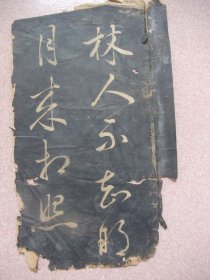 林人不知明
月来相照